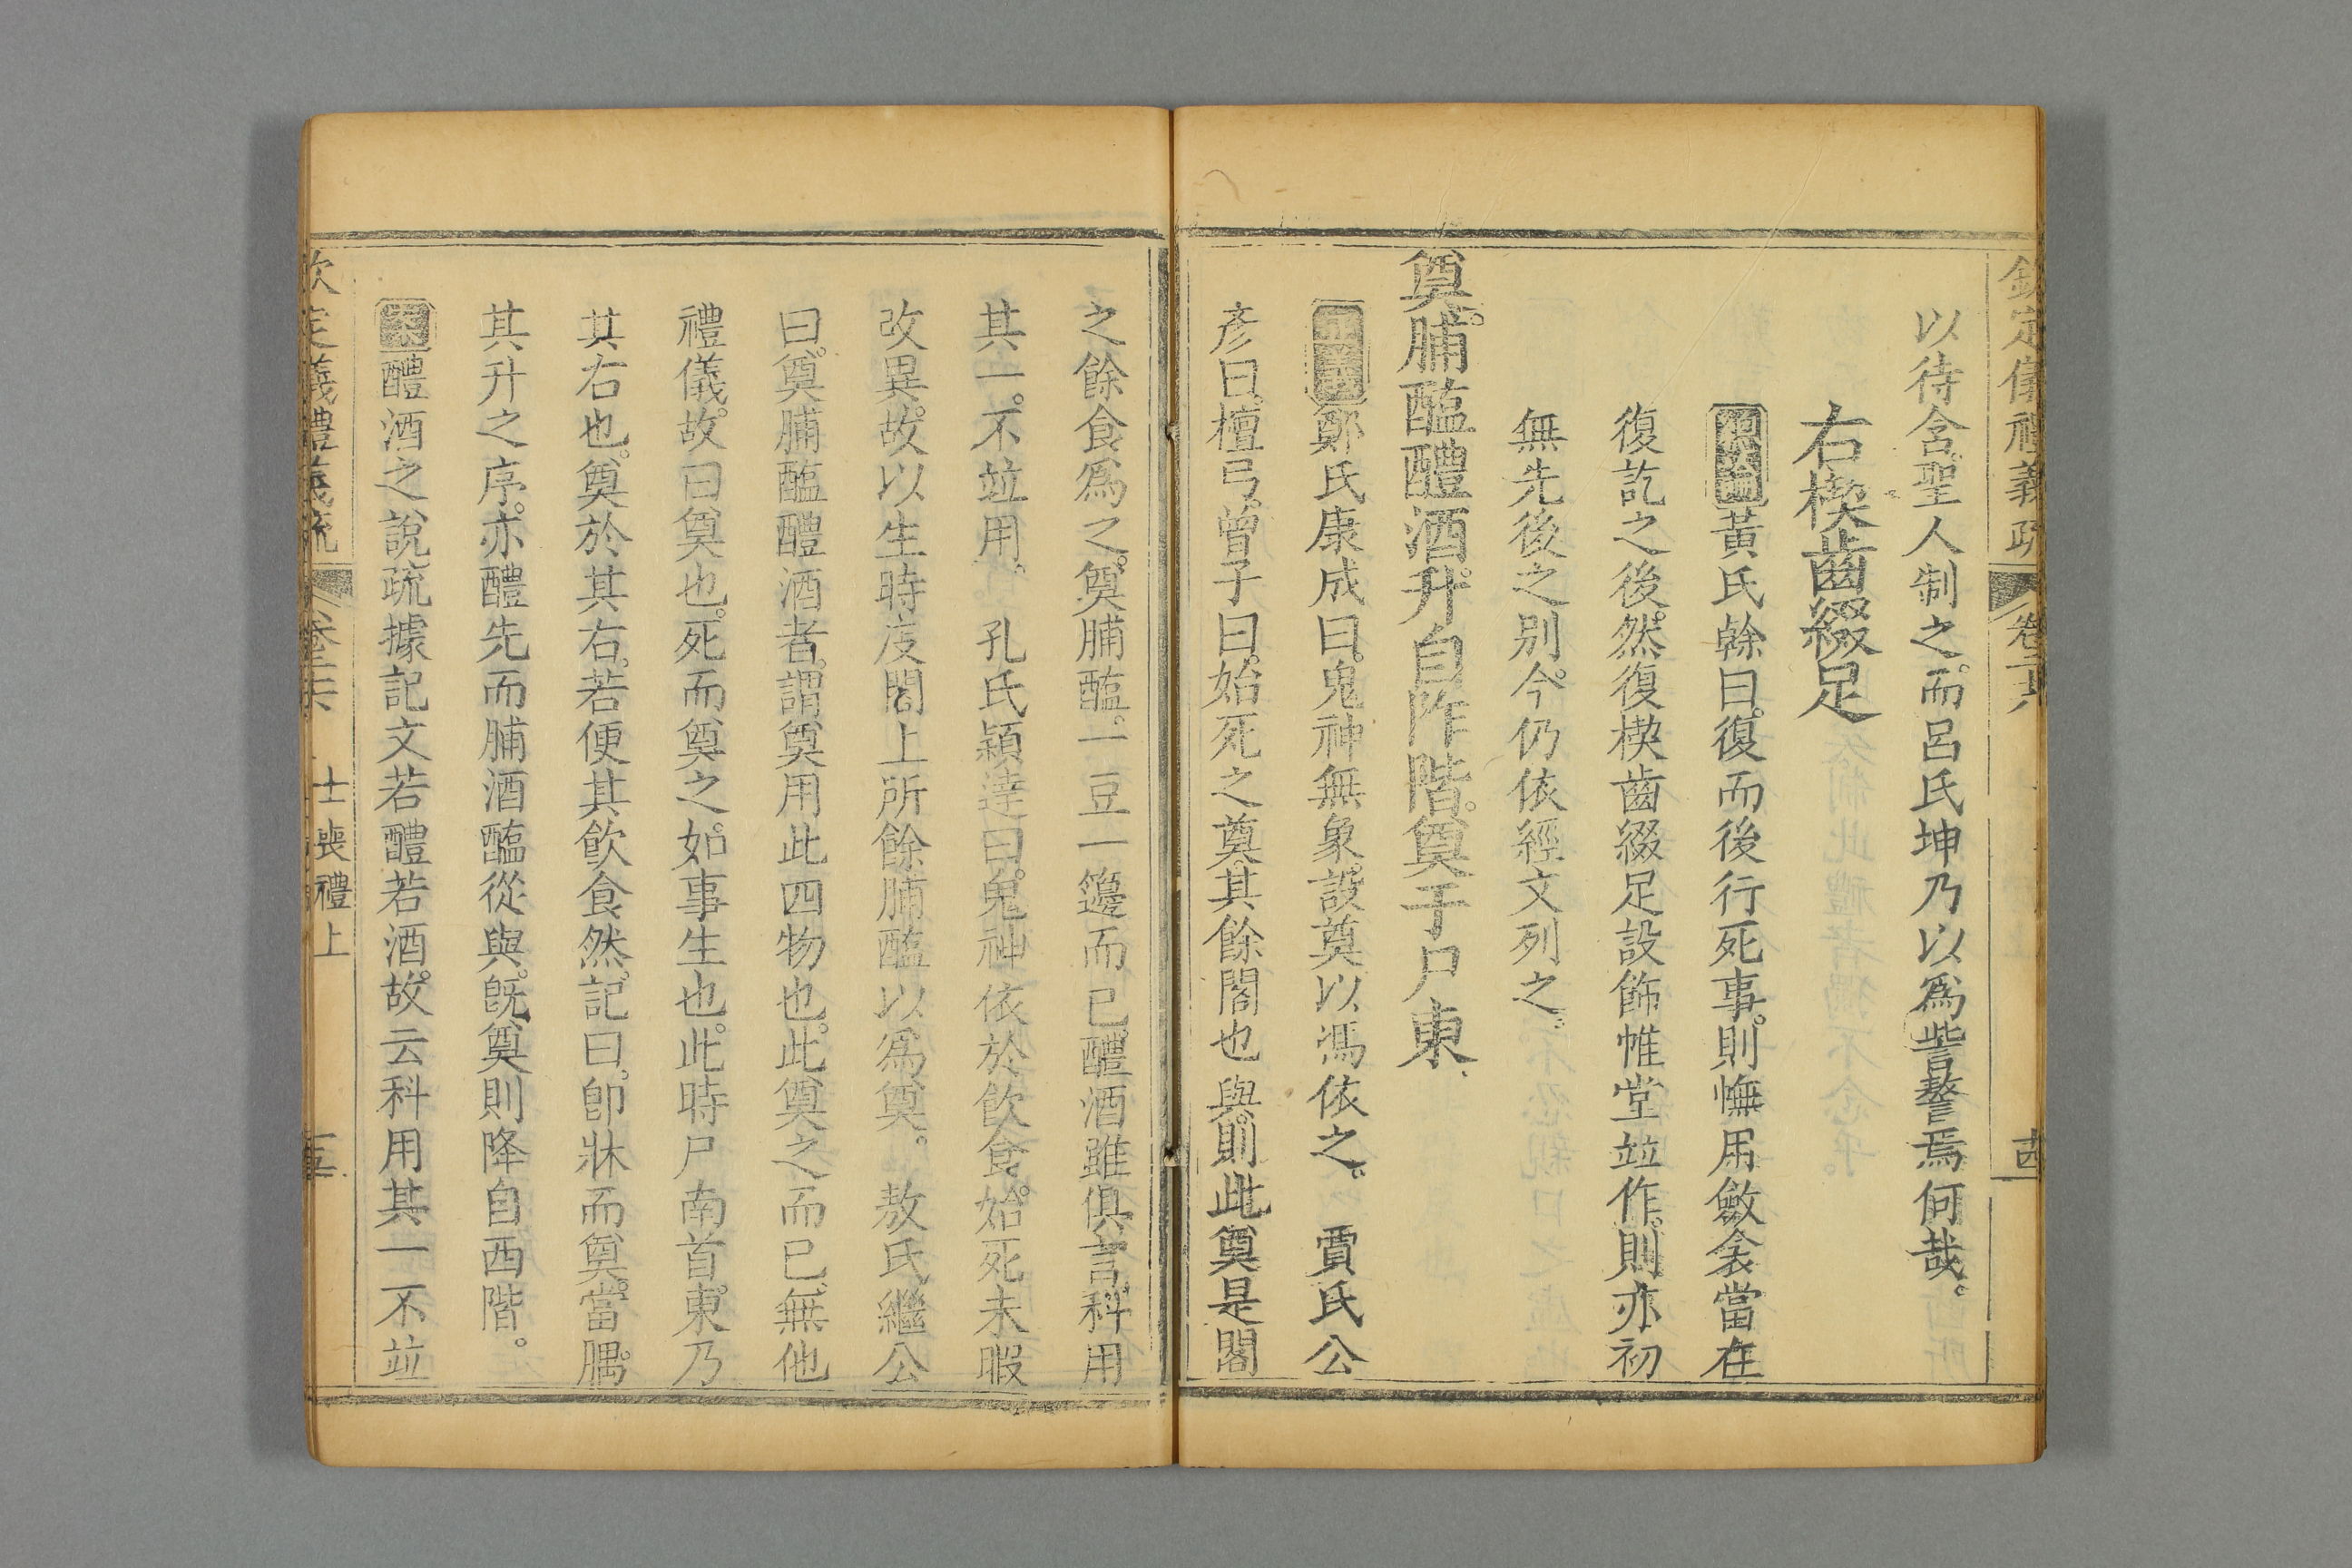 欽定儀禮義疏 卷二十六 十四
以待含。聖人制之。而呂氏坤乃以爲訾謷焉何哉。
右楔齒綴足
總論黃氏榦曰。復而後行死事。則幠用斂衾當在
復訖之後。然復楔齒綴足設飾帷堂竝作。則亦初
無先後之别。今仍依經文列之。
奠。脯醢醴酒。升自阼階。奠于尸東。
正義鄭氏康成曰。鬼神無象。設奠以馮依之。 賈氏公
彥曰。檀弓。曾子曰。始死之奠。其餘閣也與。則此奠是閣
之餘食爲之。奠脯醢。一豆一籩而已。醴酒雖俱言。科用
其一。不竝用。 孔氏穎達曰。鬼神依於飮食。始死未暇
改異。故以生時庋閣上所餘脯醢以爲奠。 敖氏繼公
曰。奠脯醢醴酒者。謂奠用此四物也。此奠之而已。無他
禮儀。故曰奠也。死而奠之。如事生也。此時尸南首。東乃
其右也。奠於其右。若便其飮食然。記曰。卽牀而奠。當腢。
其升之序。亦醴先而脯酒醢從與。旣奠則降自西階。
案醴酒之說。疏據記文若醴若酒。故云科用其一不竝
欽定儀禮義疏 卷二十六 士喪禮上